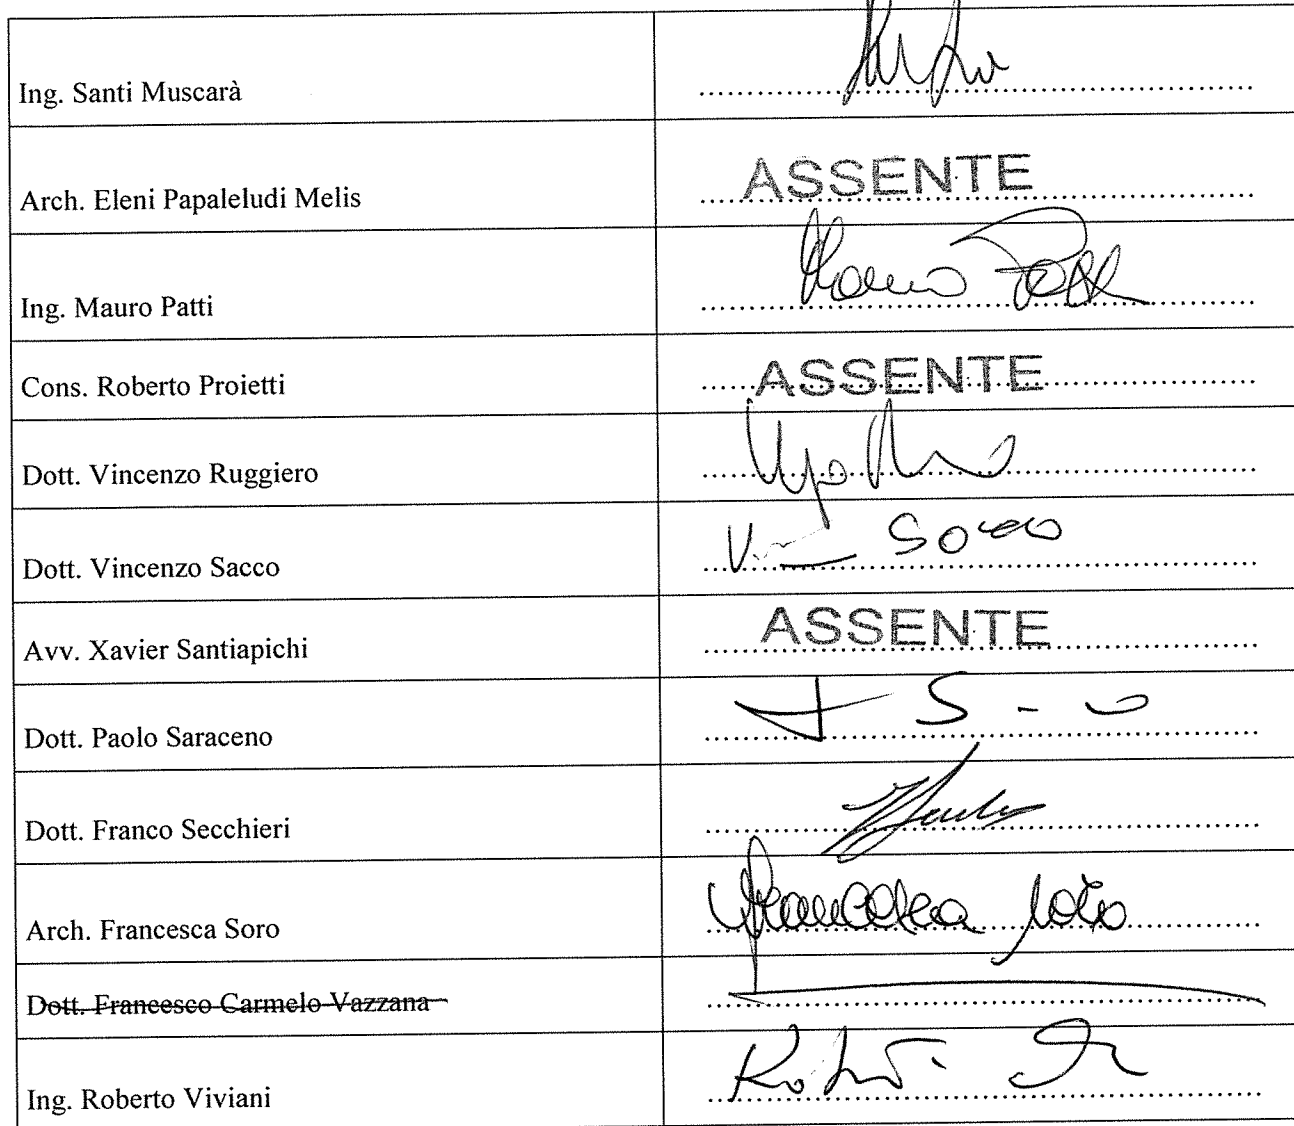 Ing. Santi Muscarà
Arch. Eleni Papaleludi Melis ASSENTE
Ing. Mauro Patti
Cons. Roberto Proietti ASSENTE
Dott. Vincenzo Ruggiero
Dott. Vincenzo Sacco Sacco
Avv. Xavier Santiapichi ASSENTE
Dott. Paolo Saraceno
Dott. Franco Secchieri
Arch. Francesca Soro Francesca Soro
Dott. Francesco Carmelo Vazzana
Ing. Roberto Viviani